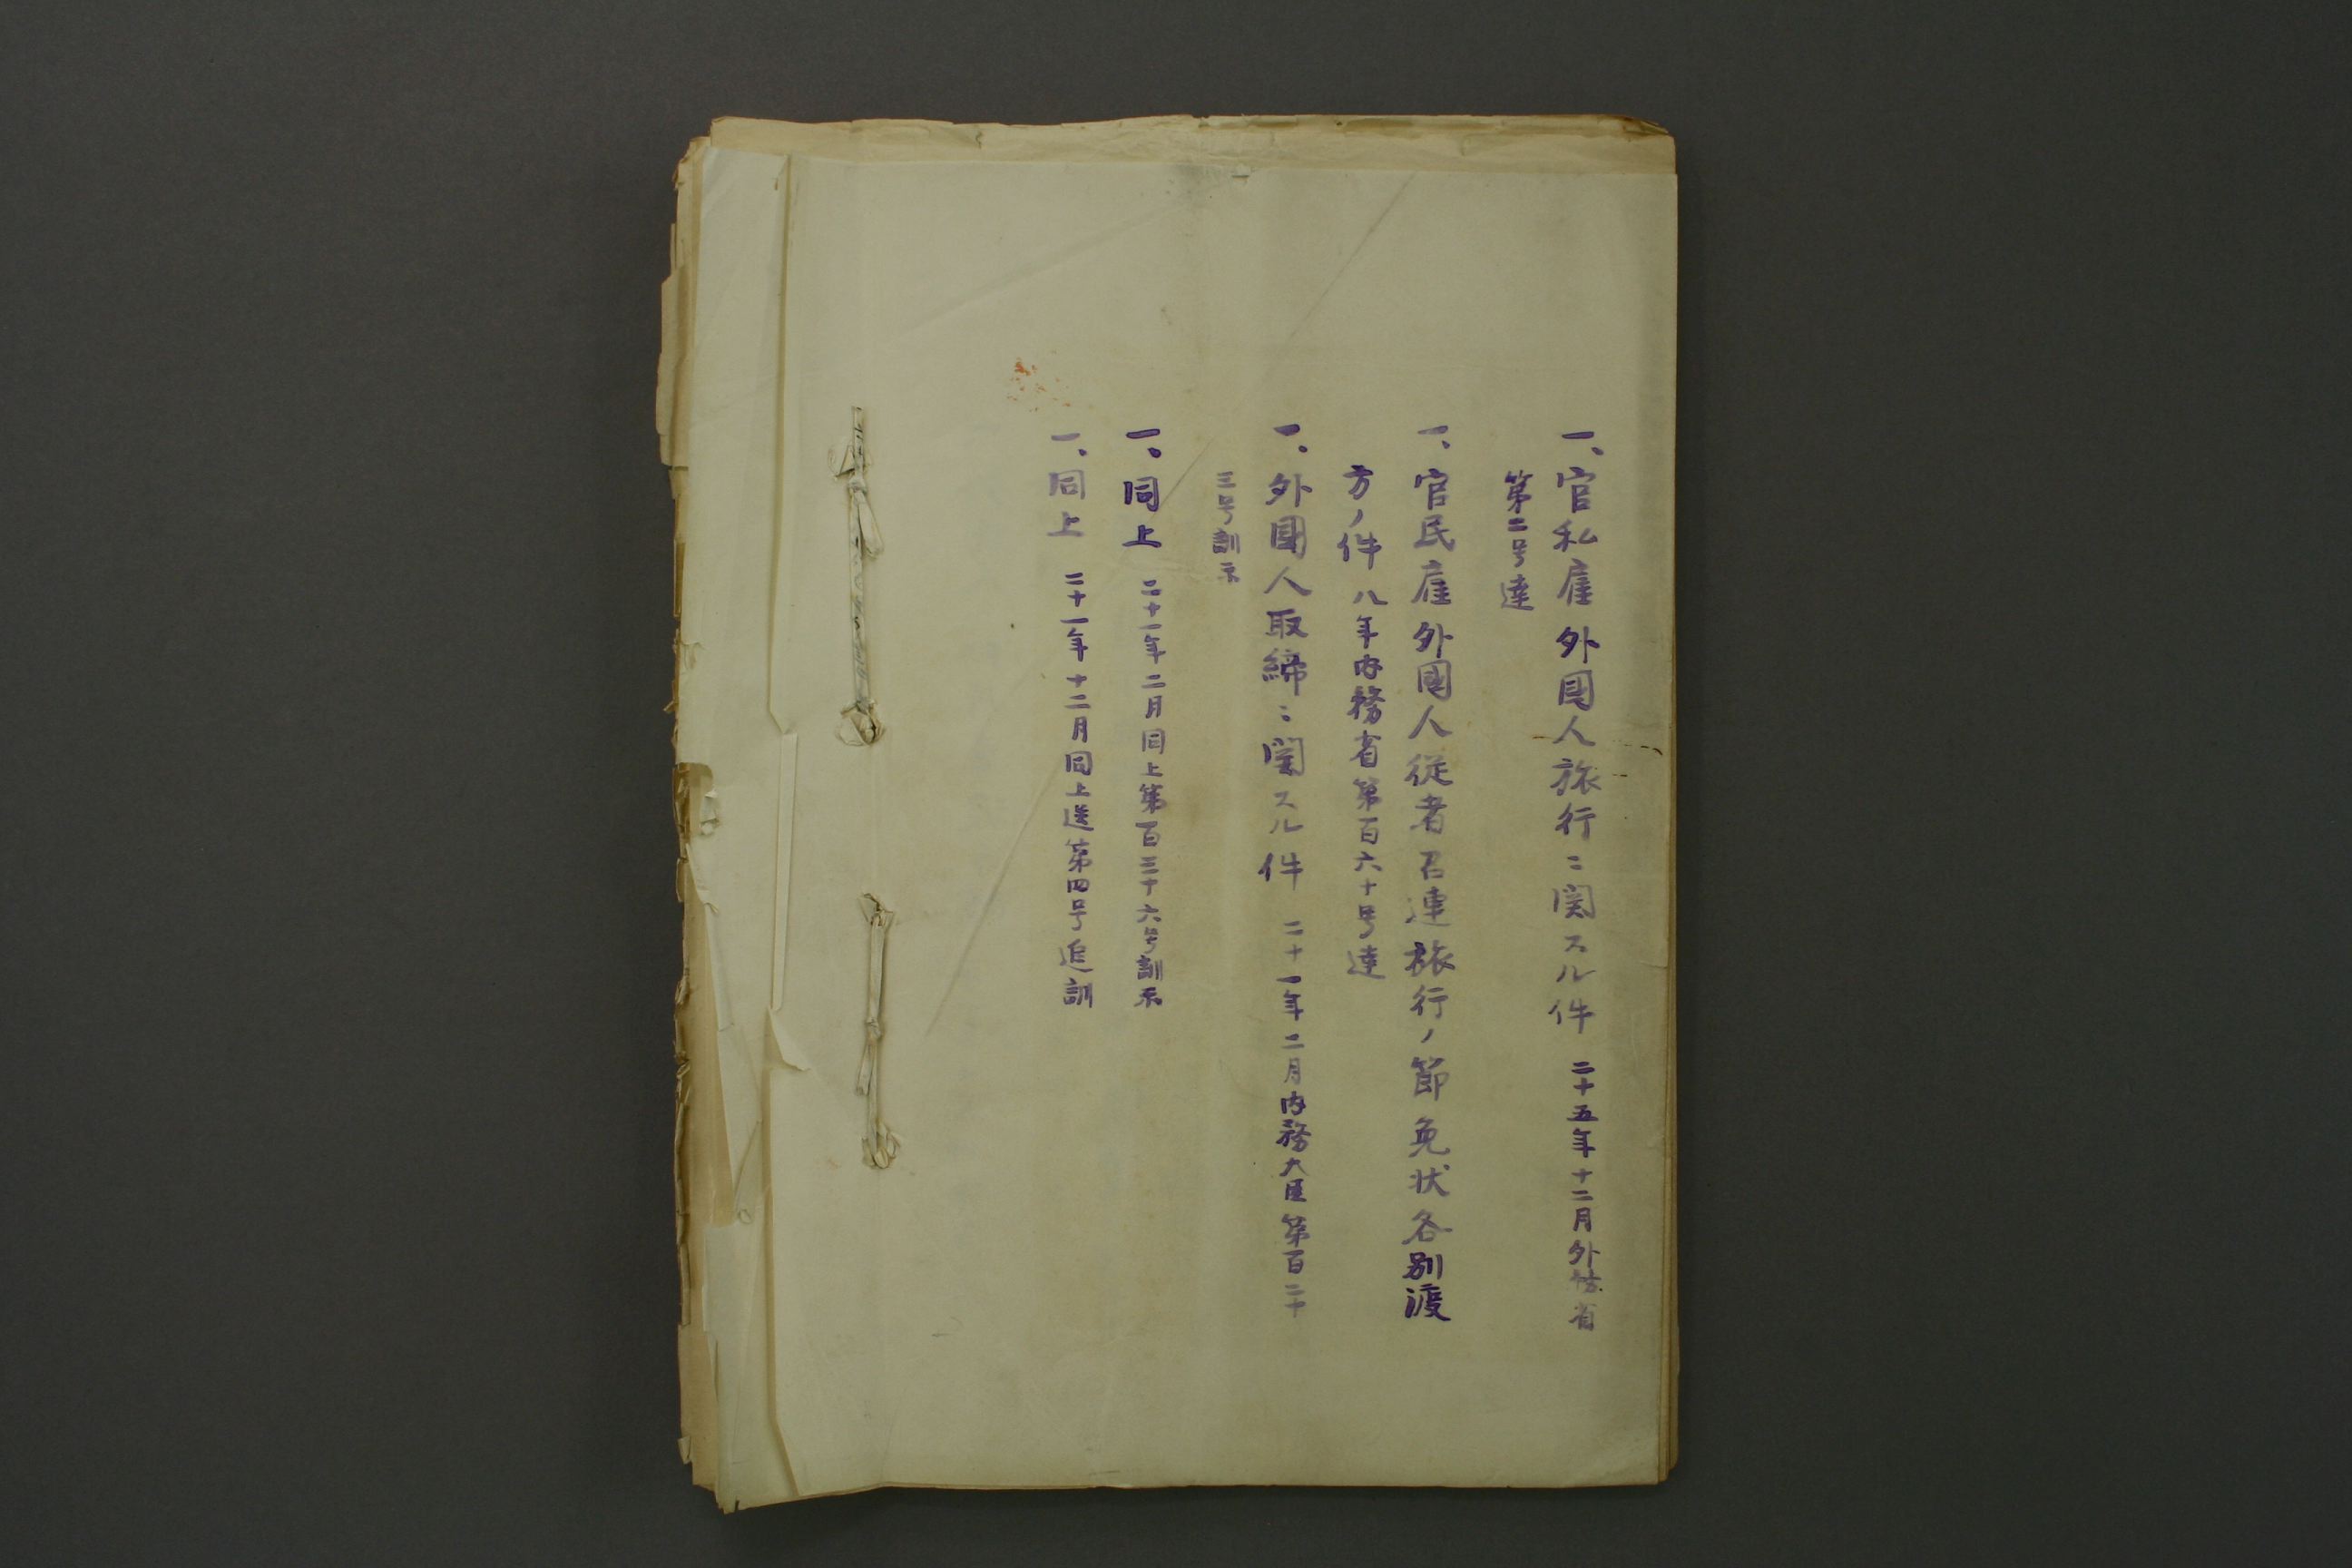 一、官私雇外国人旅行ニ関スル件 二十五年十二月外務省
第二号達
一、官民雇外國人従者召連旅行ノ節免状各別渡
方ノ件 八年内務省第百六十号達
一、外國人取締ニ関スル件 二十一年二月内務大臣第百二十
三号訓示
一、同上 二十一年二月同上第百三十六号訓示
一、同上 二十一年十二月同上送第四号追訓